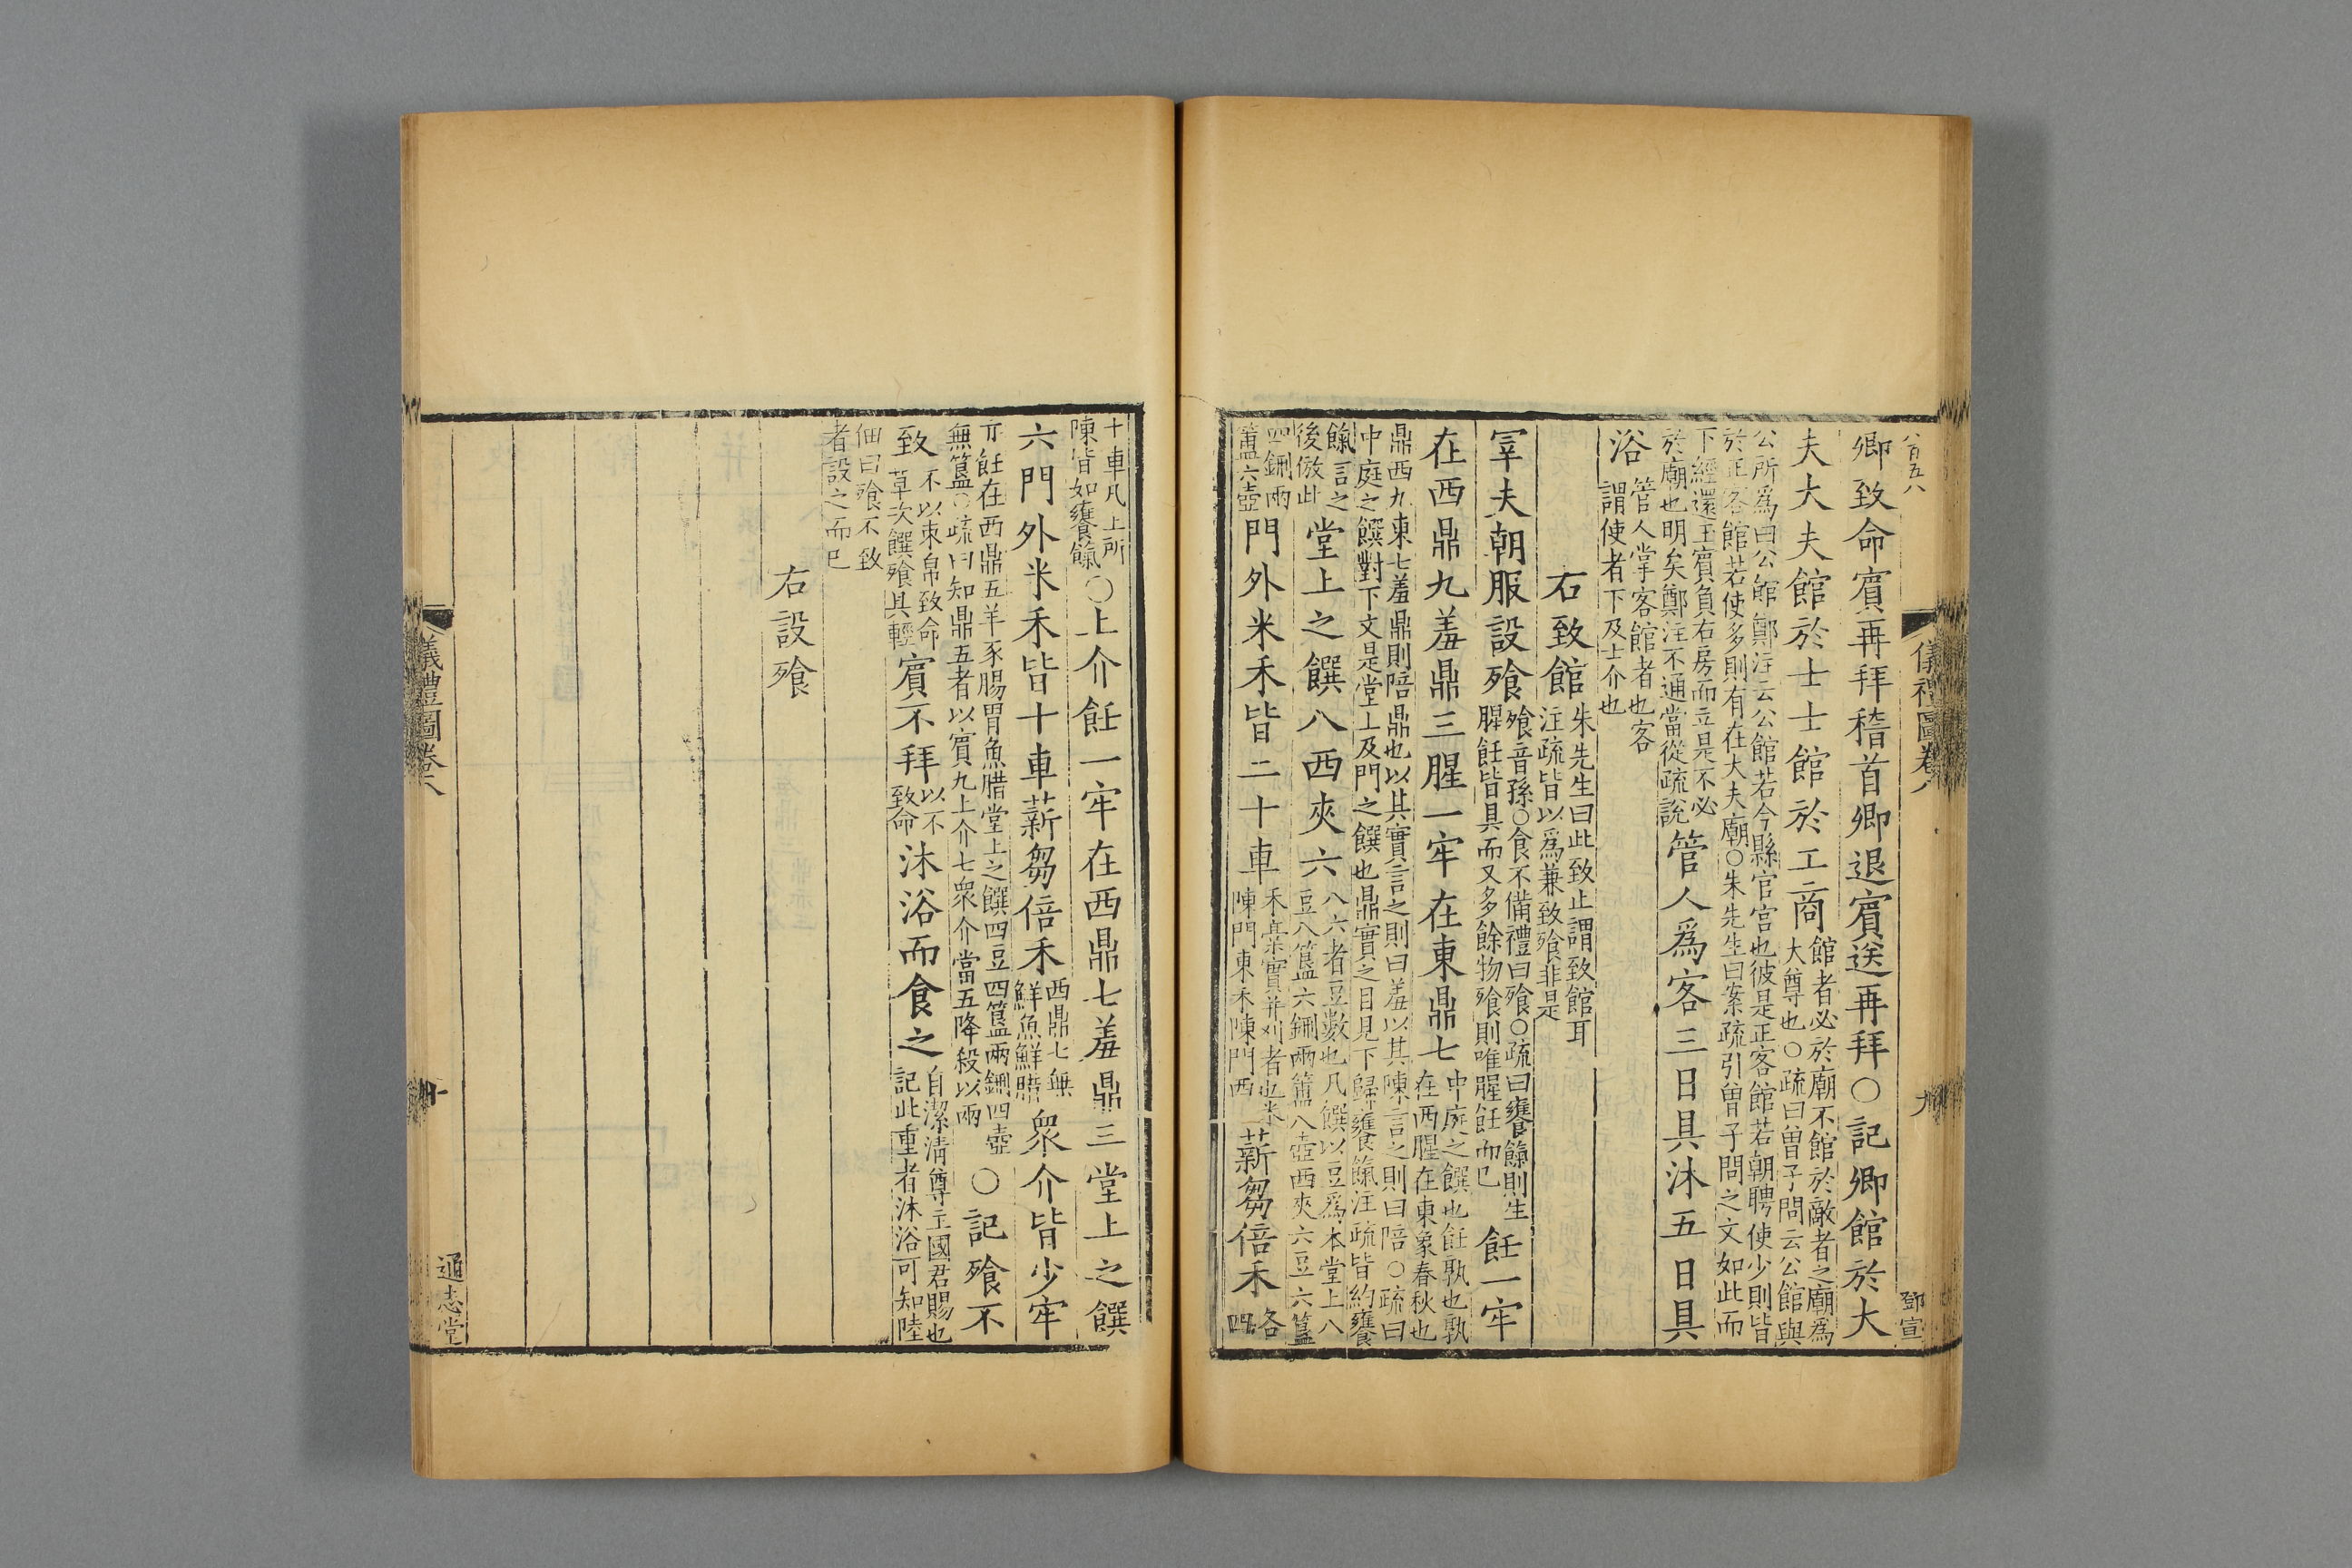 八百五八
儀禮圖卷八
九
鄧宣
卿致命賓再拜稽首卿退賓送再拜○記卿館於大
夫大夫館於士士館於工商
館者必於廟不館於敵者之廟爲
大尊也○疏曰曾子問云公館與
公所爲曰公館鄭注云公館若今縣官宮也彼是正客館若朝聘使少則皆
於正客館若使多則有在大夫廟○朱先生曰案疏引曾子問之文如此而
下經還玉賓負右房而立是不必
於廟也明矣鄭注不通當從疏說
管人爲客三日具沐五日具
浴
管人掌客館者也客
謂使者下及士介也
右致館
朱先生曰此致止謂致館耳
注疏皆以爲兼致飱非是
宰夫朝服設飱
飱音孫○食不備禮曰飱○疏曰饔餼則生
腥飪皆具而又多餘物飱則唯腥飪而已
飪一牢
在西鼎九羞鼎三腥一牢在東鼎七
中庭之饌也飪孰也孰
在西腥在東象春秋也
鼎西九東七羞鼎則陪鼎也以其實言之則曰羞以其陳言之則曰陪○疏曰
中庭之饌對下文是堂上及門之饌也鼎實之目見下歸饔餼注疏皆約饔
餼言之
後倣此
堂上之饌八西夾六
八六者豆數也凡饌以豆爲本堂上八
豆八簋六鉶兩簠八壺西夾六豆六簋
四鉶兩
簠六壺
門外米禾皆二十車
禾槀實并刈者也米
陳門東禾陳門西
薪芻倍禾
各
四
十車凡上所
陳皆如饔餼
○上介飪一牢在西鼎七羞鼎三堂上之饌
六門外米禾皆十車薪芻倍禾
西鼎七無
鮮魚鮮腊
衆介皆少牢
亦飪在西鼎五羊豕腸胃魚腊堂上之饌四豆四簋兩鉶四壺
無簠○疏曰知鼎五者以賓九上介七衆介當五降殺以兩
○記飱不
致
不以束帛致命
草次饌飱具輕
賓不拜
以不
致命
沐浴而食之
自潔清尊主國君賜也
記此重者沐浴可知陸
佃曰飱不致
者設之而已
右設飱
儀禮圖卷八
十
通志堂